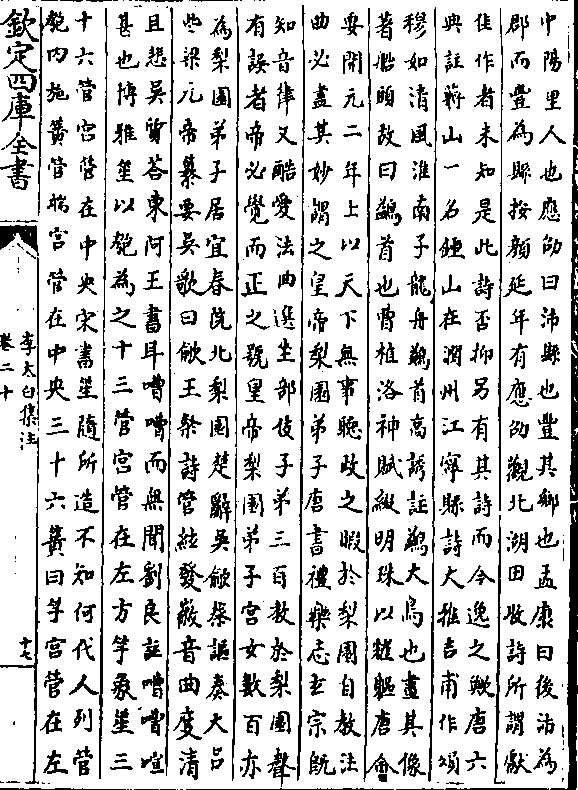 中陽里人也應劭曰沛縣也豐其鄉也孟康曰後沛為
郡而豐為縣按顔延年有應劭觀北湖田收詩所謂獻
佳作者未知是此詩否抑另有其詩而今逸之歟唐六
典註蔣山一名鍾山在潤州江寧縣詩大雅吉甫作頌
穆如清風淮南子龍舟鷁首高誘註鷁大鳥也畫其像
著船頭故曰鷁首也曹植洛神賦綴明珠以耀軀唐會
要開元二年上以天下無事聽政之暇於梨園自教法
曲必盡其妙謂之皇帝梨園弟子唐書禮樂志玄宗既
知音律又酷愛法曲選坐部伎子弟三百教於梨園聲
有誤者帝必覺而正之號皇帝梨園弟子宮女數百亦
為梨園弟子居宜春院北梨園楚辭吳歈蔡謳奏大呂
些梁元帝纂要吳歌曰歈王粲詩管絃發徽音曲度清
且悲吳質答東阿王書耳嘈嘈而無聞劉良註嘈嘈喧
甚也博雅笙以匏為之十三管宮管在左方竽象笙三
十六管宮管在中央宋書笙隨所造不知何代人列管
匏内施簧管端宮管在中央三十六簧曰竽宮管在左
欽定四庫全書
李太白集注
卷二十
十七